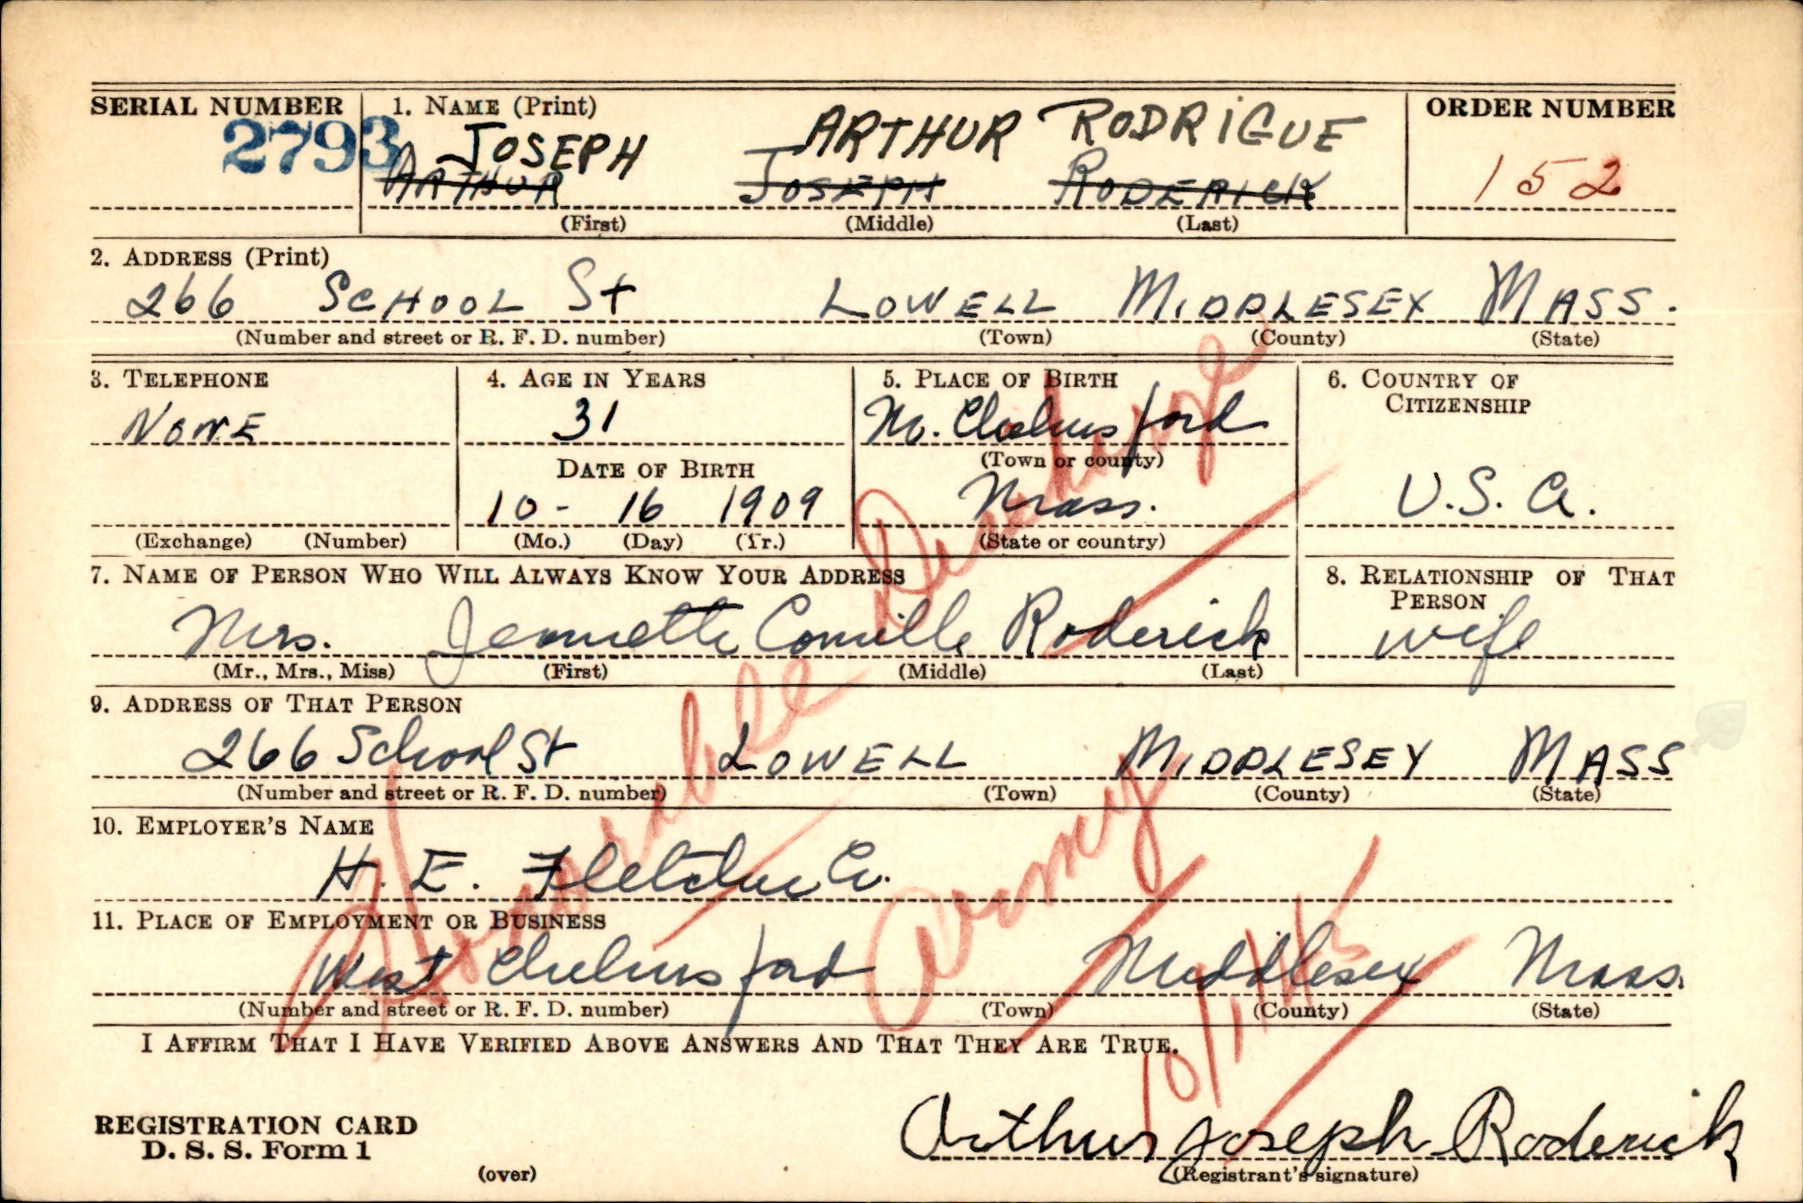 SERIAL NUMBER 1. NAME (Print) ORDER NUMBER
2793 JOSEPH ARTHUR RODRIGUE
ARTHUR JOSEPH RODERICK 152
(First) (Middle) (Last)
2. ADDRESS (Print)
266 SCHOOL St LOWELL MIDDLESEX MASS.
(Number and street or R. F. D. number) (Town) (County) (State)
3. TELEPHONE 4. AGE IN YEARS 5. PLACE OF BIRTH 6. COUNTRY OF CITIZENSHIP
NONE 31 N. Chelmsford
(Town or county)
DATE OF BIRTH
10- 16 1909 Mass. U.S.A.
(Exchange) (Number) (Mo.) (Day) (Yr.) (State or country)
7. NAME OF PERSON WHO WILL ALWAYS KNOW YOUR ADDRESS 8. RELATIONSHIP OF THAT PERSON
Mrs. Jeannette Camille Roderick wife
(Mr., Mrs., Miss) (First) (Middle) (Last)
9. ADDRESS OF THAT PERSON
266 School St LOWELL MIDDLESEY MASS
(Number and street or R. F. D. number) (Town) (County) (State)
10. EMPLOYER'S NAME
H. E. Fletcher Co.
11. PLACE OF EMPLOYMENT OR BUSINESS
West Chelmsford Middlesex Mass.
(Number and street or R. F. D. number) (Town) (County) (State)
Honorable Discharge
Army
I AFFIRM THAT I HAVE VERIFIED ABOVE ANSWERS AND THAT THEY ARE TRUE.
REGISTRATION CARD
D. S. S. Form 1
(over)
Arthur Joseph Roderick
(Registrant's signature)